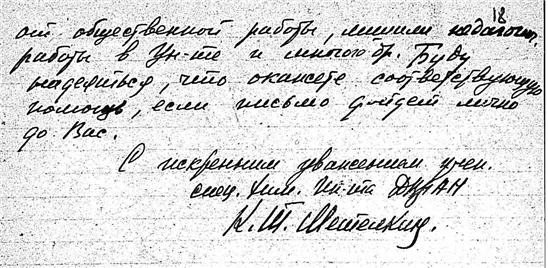 18
от общественной работы, лишили педагогич.
работы в Ун-те и много др. Буду
надеяться, что окажете соответствующую
помощь, если письмо дойдет лично
до Вас.
С искренним уважением учен.
спец. Хим. Ин-та
К. Т.